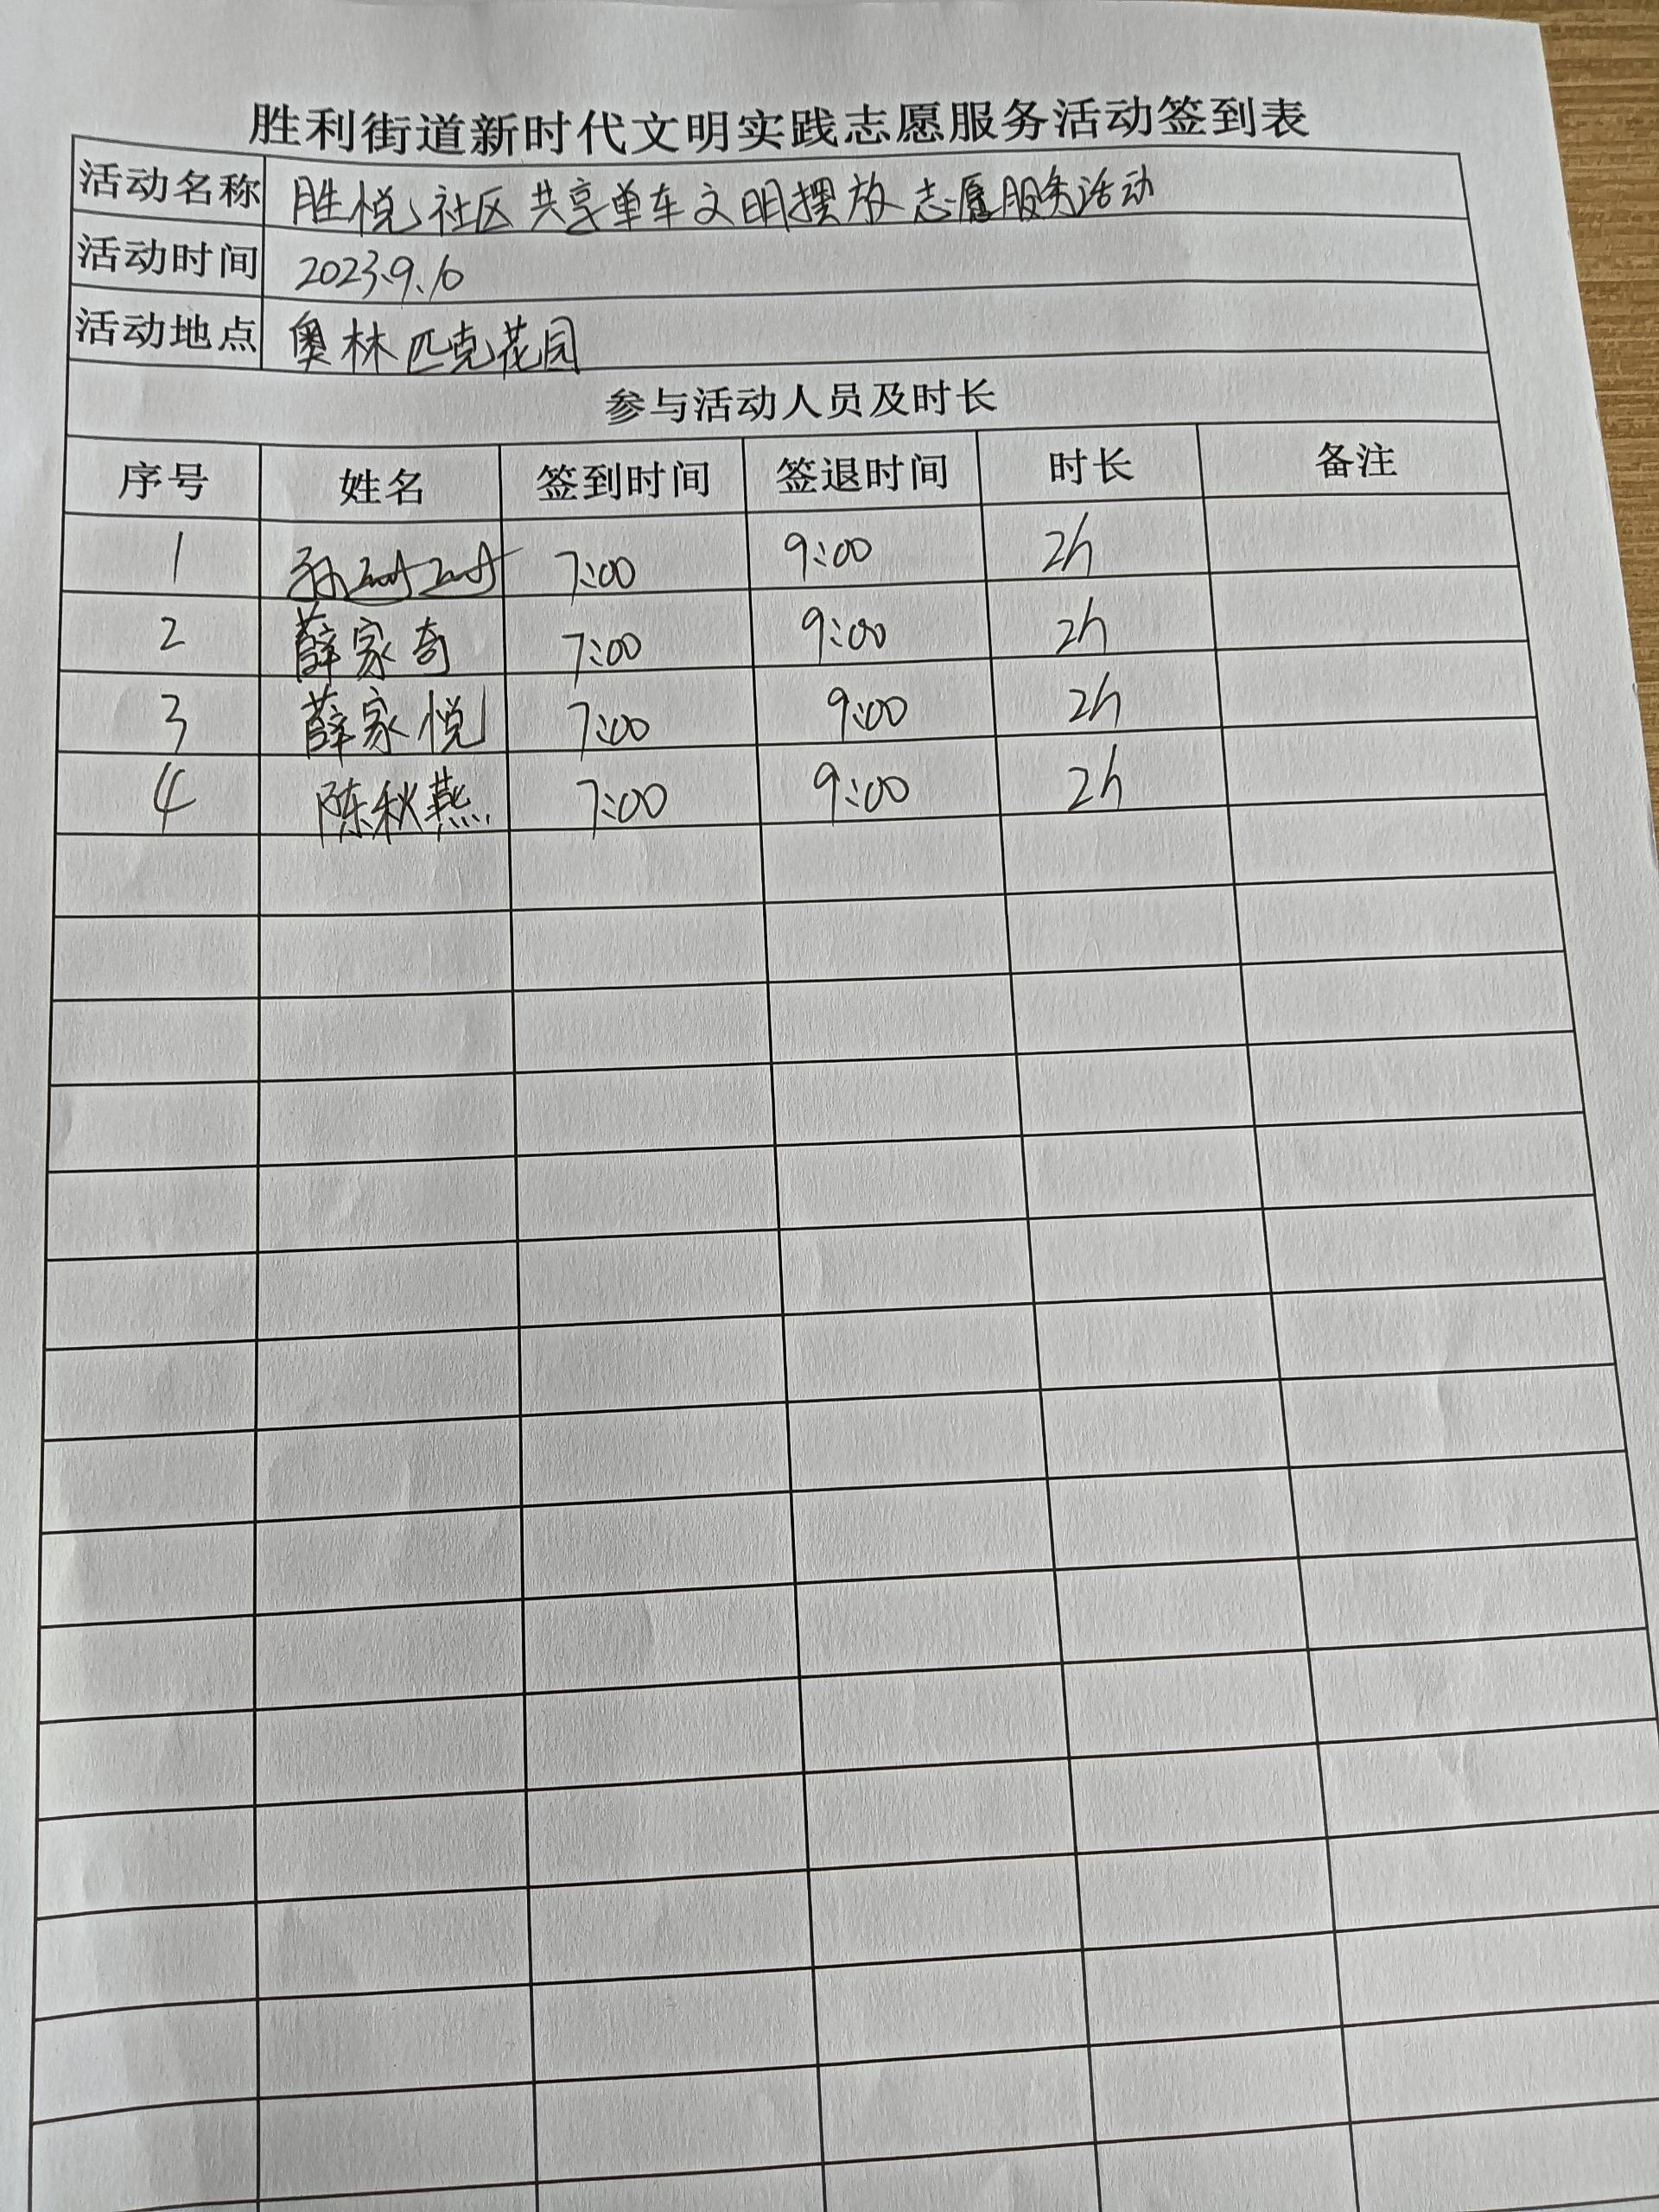 胜利街道新时代文明实践志愿服务活动签到表
活动名称 胜悦社区共享单车文明摆放志愿服务活动
活动时间 2023.9.10
活动地点 奥林匹克花园
参与活动人员及时长
序号 姓名 签到时间 签退时间 时长 备注
1 孙 7:00 9:00 2h
2 薛家奇 7:00 9:00 2h
3 薛家悦 7:00 9:00 2h
4 陈秋燕 7:00 9:00 2h